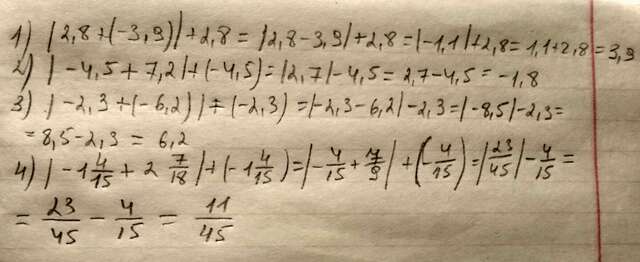 1) |2,8+(-3,9)|+2,8 = |2,8-3,9|+2,8=|-1,1|+2,8=1,1+2,8=3,9
2) |-4,5+7,2|+(-4,5)=|2,7|-4,5=2,7-4,5=-1,8
3) |-2,3+(-6,2)|+(-2,3)=|-2,3-6,2|-2,3=|-8,5|-2,3=
=8,5-2,3 = 6,2
4) |-1 4/15 + 2 7/18|+(-1 4/15)=|-4/15+7/9|+(-4/15)=|23/45|-4/15=
= 23/45 - 4/15 = 11/45